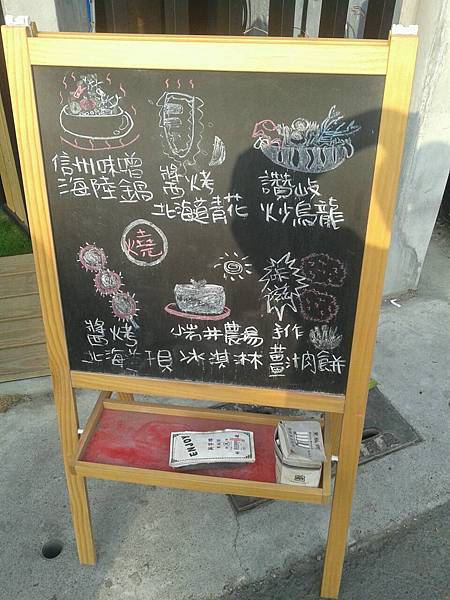 信州味噌
海陸鍋
醬烤
北海道青花
讚岐
炒烏龍
燒
醬烤
北海道干貝
小岩井農場
冰淇淋
滋滋
手作
薑汁肉餅
ENJOY